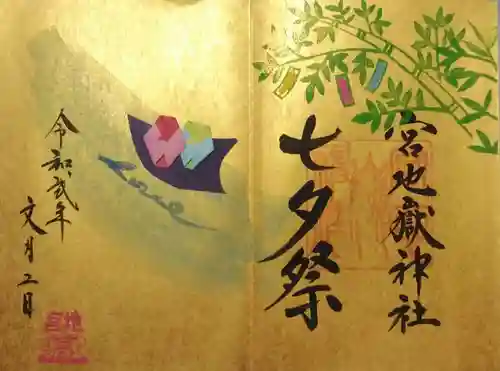 宮地嶽神社
七夕祭
令和弐年
文月二日